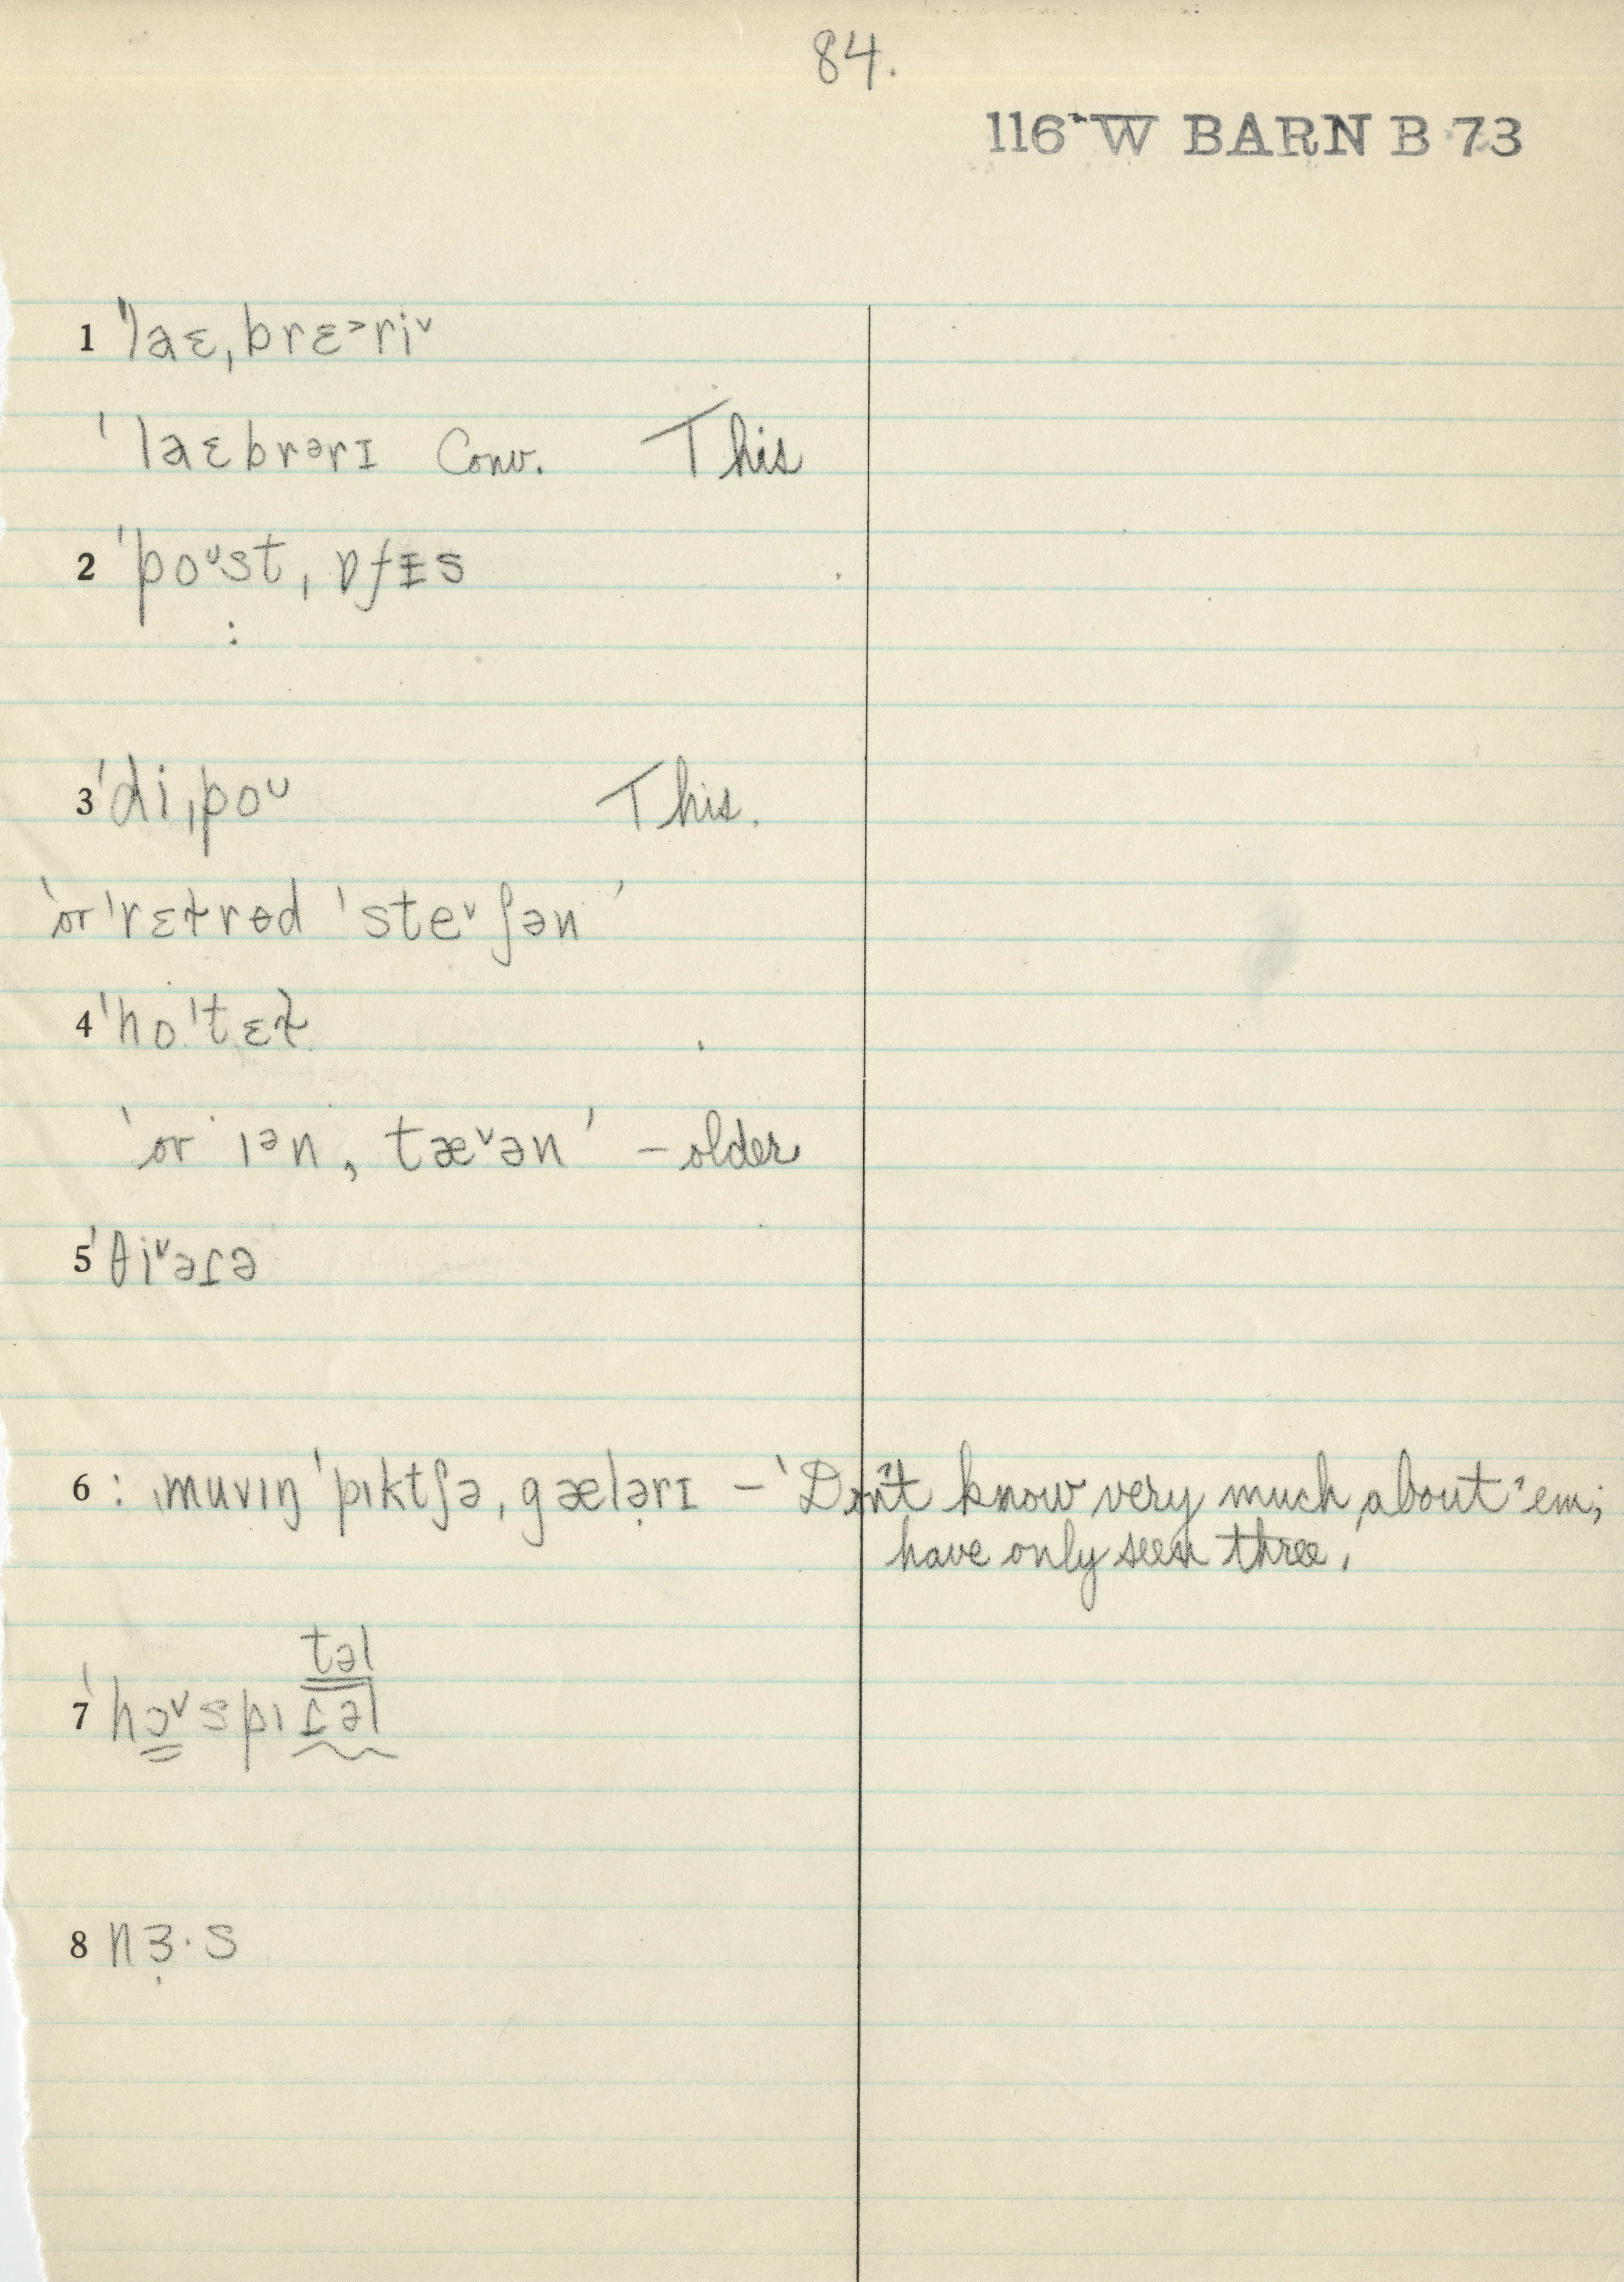 84.
116-W BARN B 73
1 ˈlaɛˌbrɛ˃ri˅
ˈlaɛbrᵊrɪ Conv. This
2 ˈpoᵘstˌɒfɪs
:
3 ˈdiˌpoᵘ This.
'or ˈrɛɫrɵd ˈste˅ʃən'
4 ˈhoˈtɛɫ
'or ɪᵊn, tæ˅ən' – older
5 ˈθi˅əɾə
6 : ˌmuvɪŋ ˈpɪktʃəˌgælə̣rɪ – 'Don't know very much about 'em;
have only seen three.'
təl
7 ˈhɔ˅spɪɾəl
8 nɜ̣·s